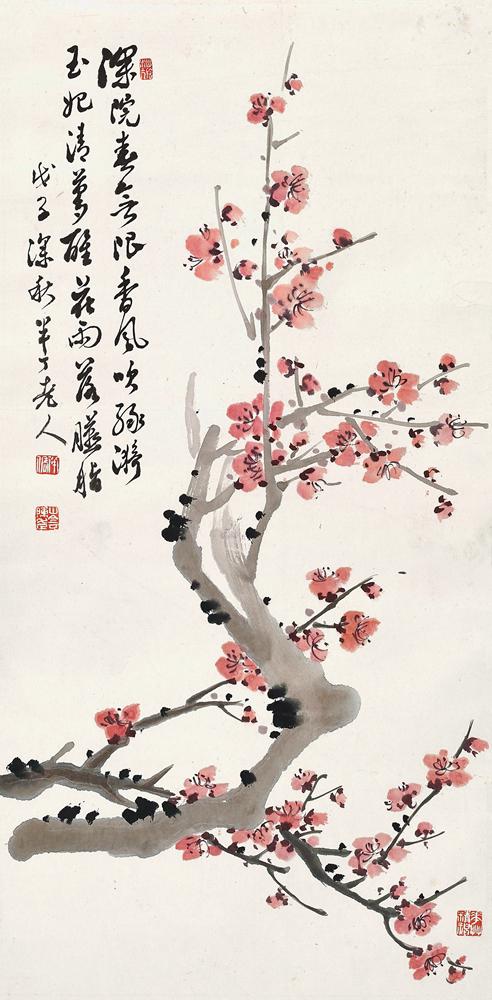 深院春無限香風吹綠漪
玉妃清夢醒花雨落臙脂
戊子深秋半丁老人